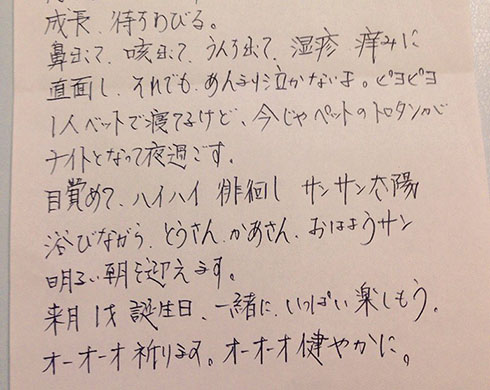 成長、待ちわびる。
鼻出て、咳出て、うんち出て、湿疹 痒みに
直面し、それでも、あんまり泣かないよ。ピヨピヨ
1人ベットで寝てるけど、今じゃペットのトロタンが
ナイトとなって夜過ごす。
目覚めて、ハイハイ 徘徊し サンサン太陽
浴びながら、とうさん、かあさん、おはようサン
明るい朝を迎えます。
来月1才 誕生日、一緒に、いっぱい 楽しもう。
オーオーオ祈ります。オーオーオ健やかに。